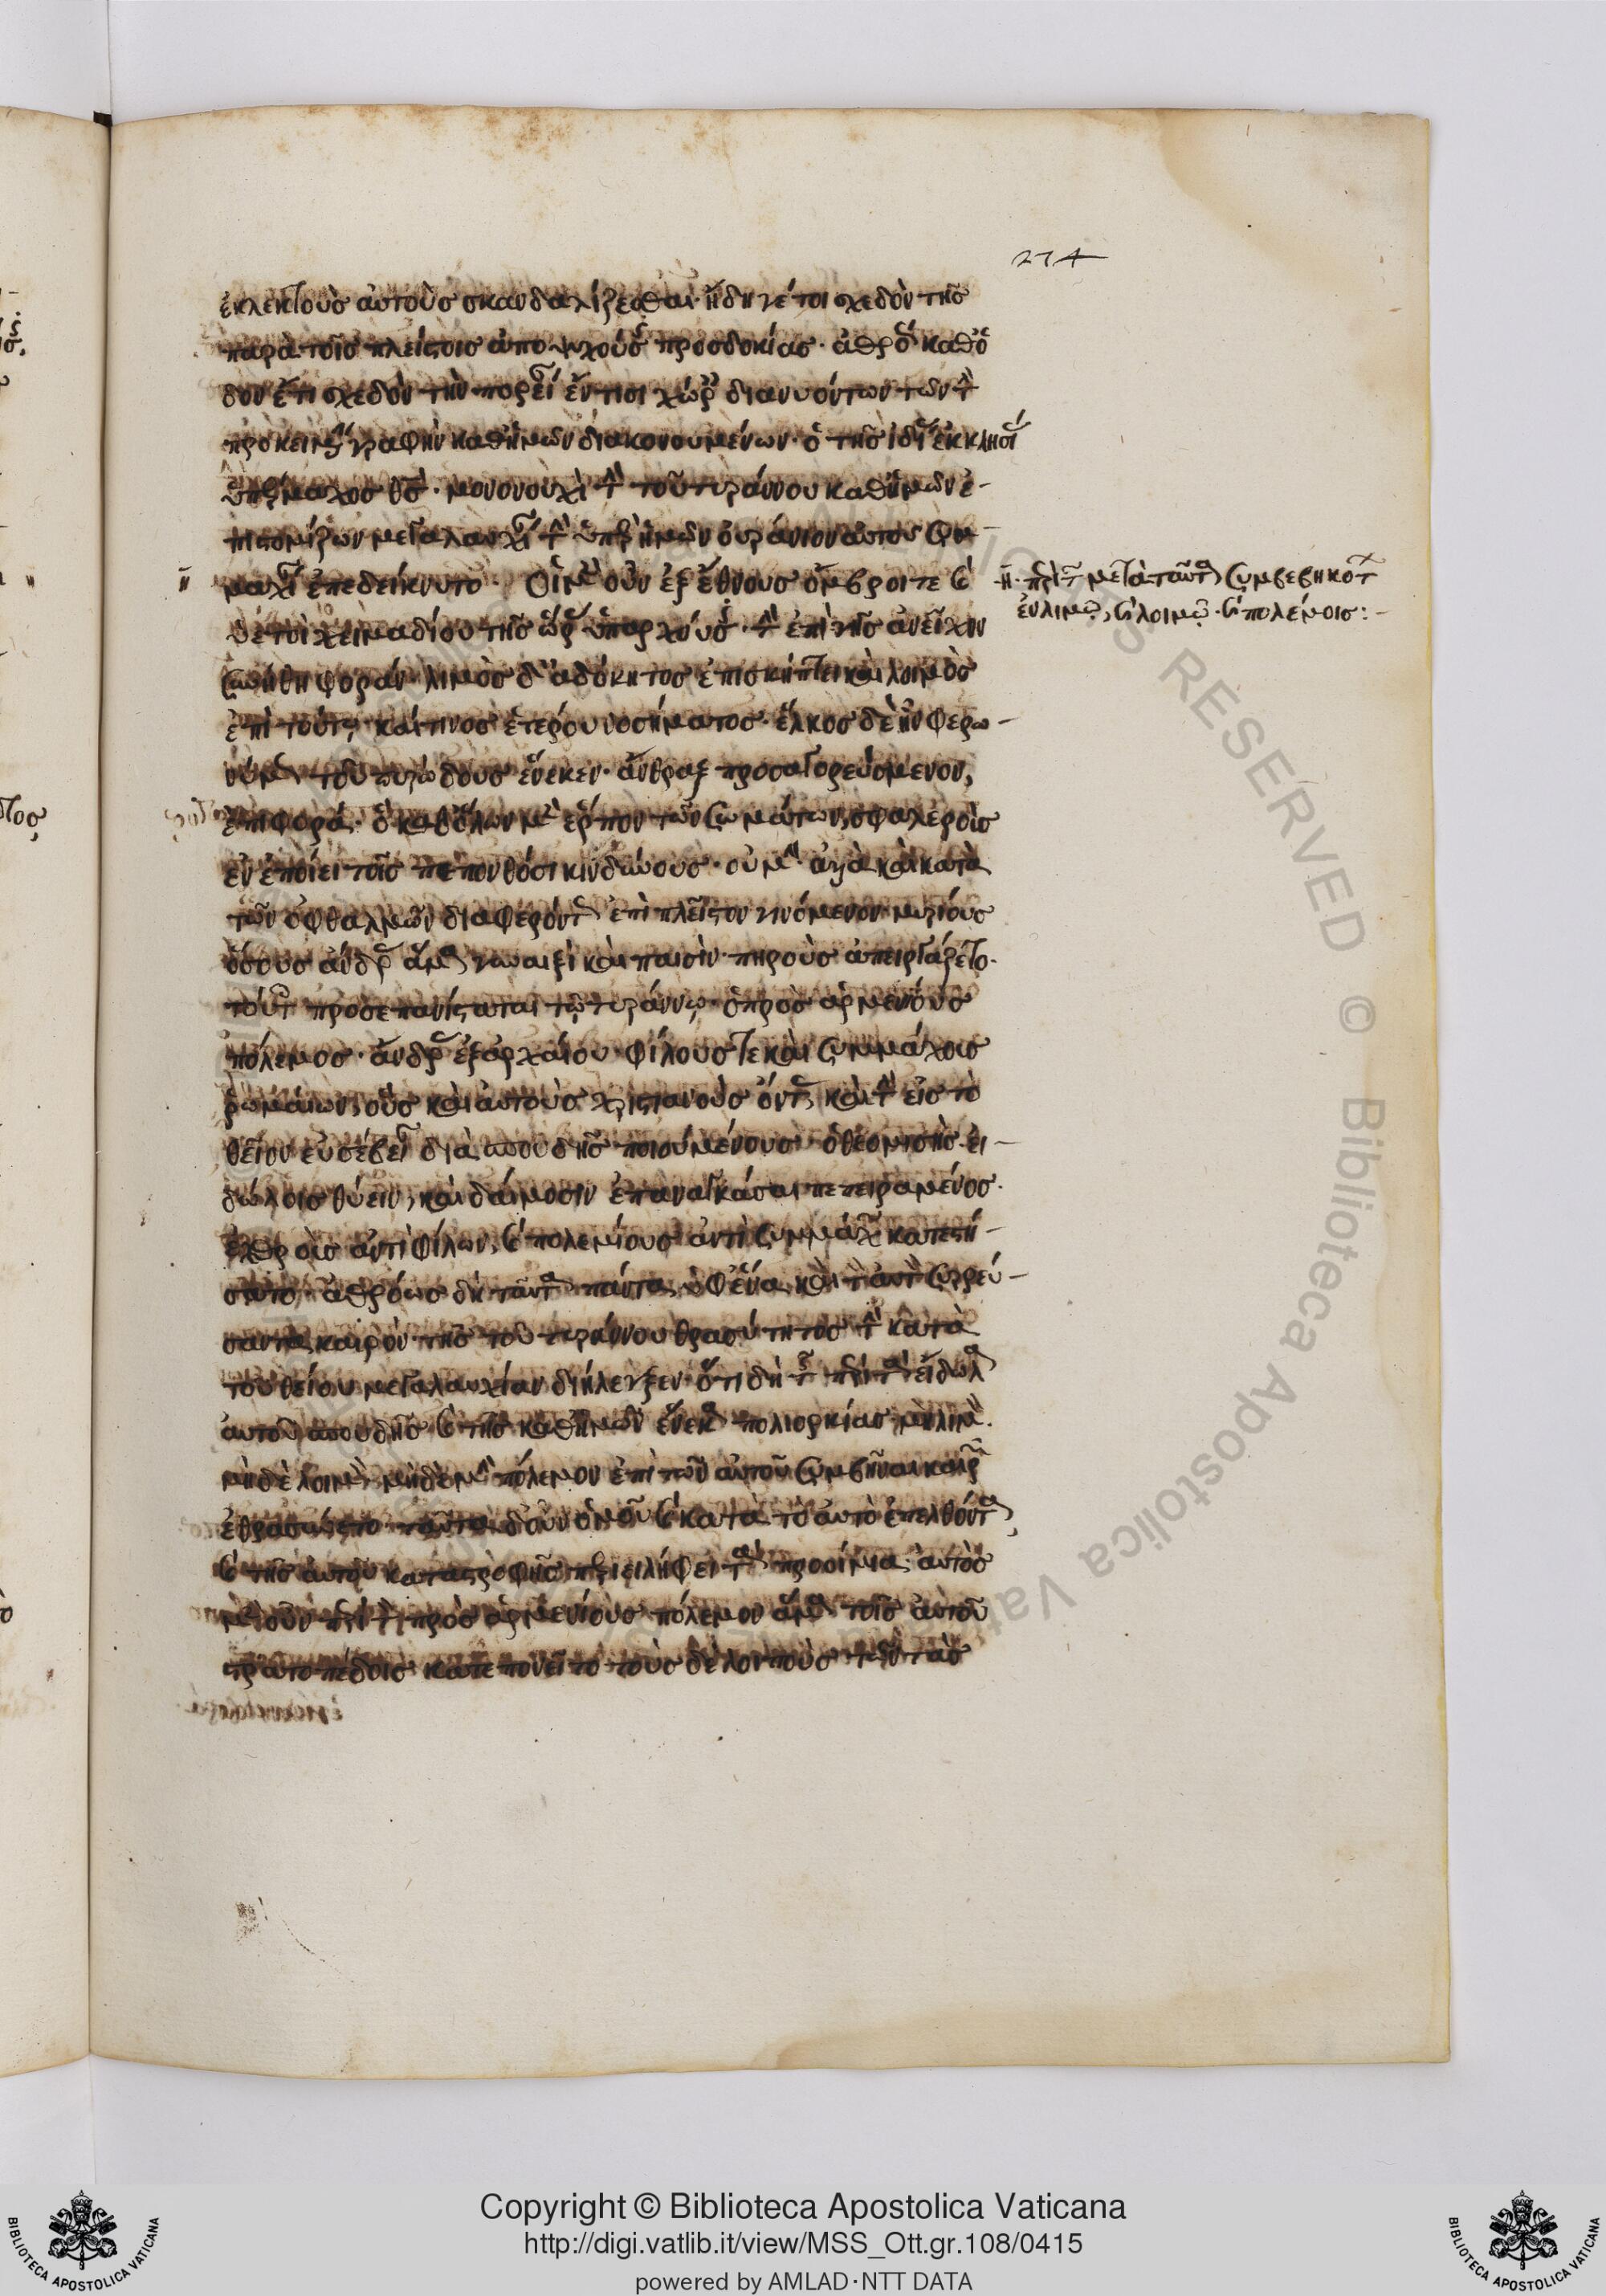 ἐκλεκτοὺς αὐτοὺς σκανδαλίζεσθαι· ἤδη γέ τοι σχεδὸν τῆς
παρὰ τοῖς πλείστοις ἀποψυχούσης προσδοκίας· ἀθρό καθ' ὁ
δὸν ἔτι σχεδὸν τὴν πορεί ἔν τισι χώρ διανυόντων τῶν τ
προκειμ γραφὴν καθ' ἡμῶν διακονουμένων· ὁ τῆς ἰδί ἐκκλησί
ὑπέρμαχος θς· μονονουχὶ τ τοῦ τυράννου καθ' ἡμῶν ἐ-
πιστομίζων μεγαλαυχί τ ὑπὲρ ἡμῶν οὐράνιον αὐτοῦ συμ-
μαχί ἐπεδείκνυτο· Οἱ μὲν οὖν ἐξ ἔθνους ὄμβροι τε καὶ
ὑετοὶ χειμαδίου τῆς ὥρ ὑπαρχούσ· τ ἐπὶ γῆς ἀνεῖχον
συνήθη φοράν· λιμὸς δ' ἀδόκητος ἐπισκήπτει καὶ λοιμὸς
ἐπὶ τούτῳ, καί τινος ἑτέρου νοσήματος· ἕλκος δὲ ἦν φερω-
νύμ τοῦ πυρώδους ἕνεκεν· ἄνθραξ προσαγορευόμενον,
ἐπιφορά· ὃ καθ' ὅλων μὲν ἕρπον τῶν σωμάτων, σφαλεροὺς
ἐνεποίει τοῖς πεπονθόσι κινδύνους· οὐ μὴν ἀλλὰ καὶ κατὰ
τῶν ὀφθαλμῶν διαφερόντ ἐπὶ πλεῖστον γινόμενον· μυρίους
ὅσους ἄνδρ ἅμα γυναιξὶ καὶ παισὶν πηροὺς ἀπειργάζετο·
τούτ προσεπανίσταται τῷ τυράννῳ· ὁ πρὸς ἀρμενίους
πόλεμος· ἄνδρ ἐξ ἀρχαίου φίλους τε καὶ συμμάχους
ῥωμαίων, οὓς καὶ αὐτοὺς χριστιανοὺς ὄντ, καὶ τ εἰς τὸ
θεῖον εὐσέβει διὰ σπουδῆς ποιουμένους ὁ θεομισὴς εἰ-
δώλοις θύειν, καὶ δαίμοσιν ἐπαναγκάσαι πεπειραμένος·
ἐχθροὺς ἀντὶ φίλων, καὶ πολεμίους ἀντὶ συμμάχ κατεστή-
σατο· ἀθρόως δὴ ταῦτα πάντα, ὑφ' ἕνα καὶ τ αὐτὸν συρρεύ-
σαντα καιρὸν τῆς τοῦ τυράννου θρασύτητος τ κατὰ
τοῦ θείου μεγαλαυχίαν διήλεγξεν· ὅτι δὴ τ περὶ τὰ εἴδωλ
αὐτοῦ σπουδῆς καὶ τῆς καθ' ἡμῶν ἕνεκα πολιορκίας· μὴ λιμὸν
μηδὲ λοιμὸν μηδὲ μὴν πόλεμον ἐπὶ τῶν αὐτοῦ συμβῆναι καιρ
ἐθρασύνετο· ταῦτα δ' οὖν ὁμοῦ καὶ κατὰ τὸ αὐτὸ ἐπελθόντα,
καὶ τῆς αὐτοῦ καταστροφῆς περιειλήφει τὰ προοίμια· αὐτὸς
μὲν οὖν περὶ τ πρὸς ἀρμενίους πόλεμον ἅμα τοῖς αὐτοῦ
στρατοπέδοις κατεπονεῖτο· τοὺς δὲ λοιποὺς τῶν τὰς
274
η· περὶ τ μετὰ ταῦτα συμβεβηκότ
ἐν λιμῷ, καὶ λοιμῷ· καὶ πολέμοις:-
Copyright © Biblioteca Apostolica Vaticana
http://digi.vatlib.it/view/MSS_Ott.gr.108/0415
powered by AMLAD·NTT DATA